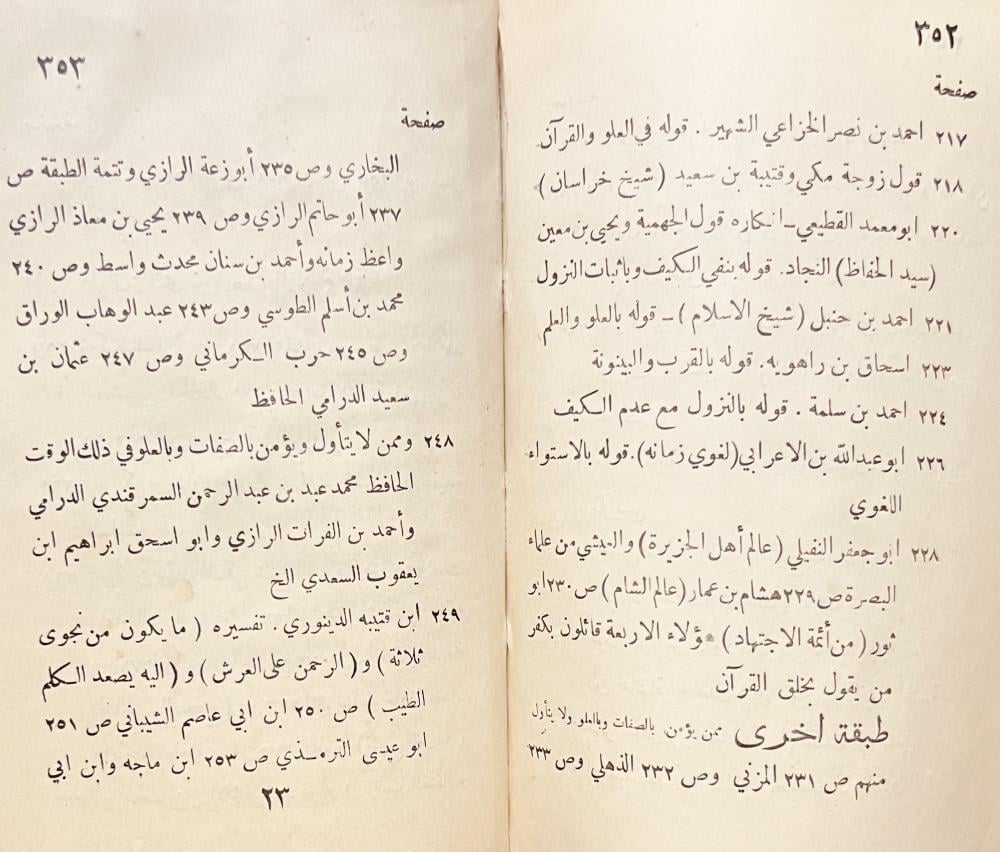 ٣٥٢
صفحة
٢١٧ احمد بن نصر الخزاعي الشهير . قوله في العلو والقرآن
٢١٨ قول زوجة مكي وقتيبة بن سعيد (شيخ خراسان)
٢٢٠ ابو معمد القطيعي ــ انكاره قول الجهمية ويحيى بن معين
(سيد الحفاظ) النجاد. قوله بنفي الكيف وباثبات النزول
٢٢١ احمد بن حنبل (شيخ الاسلام) ــ قوله بالعلو والعلم
٢٢٣ اسحاق بن راهويه. قوله بالقرب والبينونة
٢٢٤ احمد بن سلمة . قوله بالنزول مع عدم الكيف
٢٢٦ ابو عبدالله بن الاعرابي (لغوي زمانه). قوله بالاستواء
اللغوي
٢٢٨ ابو جعفر النفيلي (عالم أهل الجزيرة) والعيشي من علماء
البصرة ص ٢٢٩ هشام بن عمار (عالم الشام) ص ٢٣٠ ابو
ثور (من أئمة الاجتهاد) هؤلاء الاربعة قائلون بكفر
من يقول بخلق القرآن
طبقة اخرى ممن يؤمن بالصفات وبالعلو ولا يتأول
منهم ص ٢٣١ المزني وص ٢٣٢ الذهلي وص ٢٣٣
٣٥٣
صفحة
البخاري وص ٢٣٥ أبو زعة الرازي وتتمة الطبقة ص
٢٣٧ أبو حاتم الرازي وص ٢٣٩ يحيى بن معاذ الرازي
واعظ زمانه وأحمد بن سنان محدث واسط وص ٢٤٠
محمد بن أسلم الطوسي وص ٢٤٣ عبد الوهاب الوراق
وص ٢٤٥ حرب الكرماني وص ٢٤٧ عثمان بن
سعيد الدرامي الحافظ
٢٤٨ وممن لا يتأول ويؤمن بالصفات وبالعلو في ذلك الوقت
الحافظ محمد عبد بن عبد الرحمن السمرقندي الدرامي
وأحمد بن الفرات الرازي وابو اسحق ابراهيم ابن
يعقوب السعدي الخ
٢٤٩ ابن قتيبه الدينوري . تفسيره ( ما يكون من نجوى
ثلاثة ) و ( الرحمن على العرش ) و ( اليه يصعد الكلم
الطيب ) ص ٢٥٠ ابن ابي عاصم الشيباني ص ٢٥١
ابو عيسى الترمذي ص ٢٥٣ ابن ماجه وابن ابي
٢٣